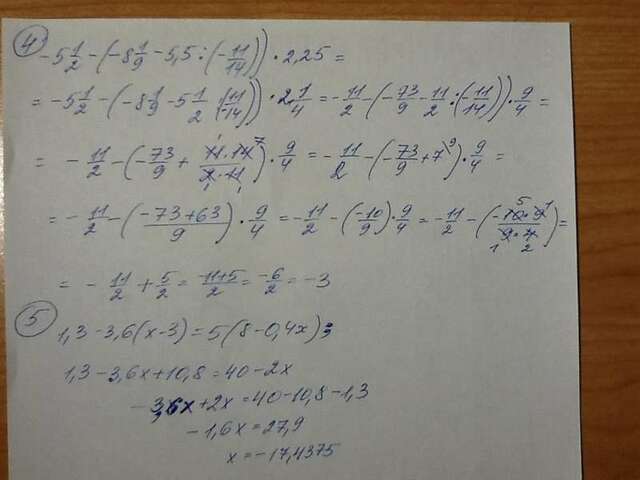 4 -5 1/2 - (-8 1/9 - 5,5 : (-11/14)) · 2,25 =
= -5 1/2 - (-8 1/9 - 5 1/2 : (-11/14)) · 2 1/4 = -11/2 - (-73/9 - 11/2 : (-11/14)) · 9/4 =
= -11/2 - (-73/9 + 11·14/2·11) · 9/4 = -11/2 - (-73/9 + 7) · 9/4 =
= -11/2 - (-73+63/9) · 9/4 = -11/2 - (-10/9) · 9/4 = -11/2 - (-10·9/9·4) =
= -11/2 + 5/2 = -11+5/2 = -6/2 = -3
5 1,3 - 3,6(x-3) = 5(8-0,4x)
1,3 - 3,6x + 10,8 = 40 - 2x
-3,6x + 2x = 40 - 10,8 - 1,3
-1,6x = 27,9
x = -17,4375